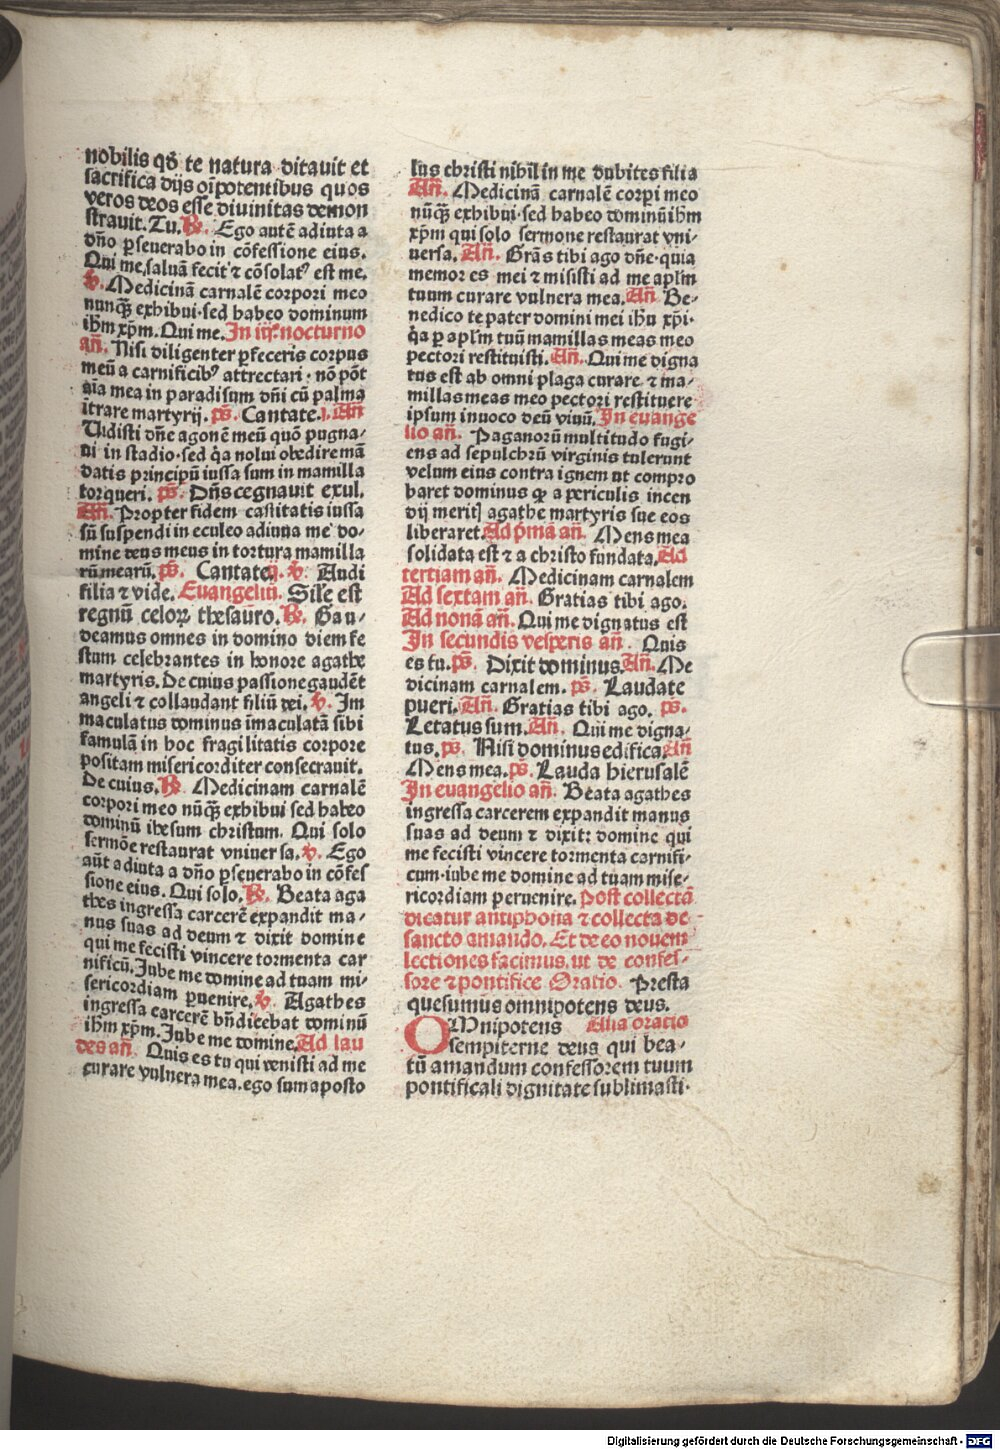 nobilis qđ te natura ditavit et
sacrifica dijs oīpotentibus quos
veros deos esse divinitas demon
stravit. Tu. ℞. Ego autē adiuta a
dño ꝑseuerabo in cōfessione eius.
Qui me saluā fecit ⁊ cōsolatꝰ est me.
℣. Medicinā carnalē corpori meo
nunqꝫ exhibui·sed habeo dominum
ihm xp̄m. Qui me. In iij. nocturno
añ. Nisi diligenter ꝑfeceris corpus
meū a carnificibꝰ attrectari·nō pōt
aīa mea in paradisum dñi cū palma
itrare martyrij. ps̄. Cantate.i. Añ
Uidisti dñe agonē meū quō pugna/
ui in stadio·sed q̇a nolui obedire mā
datis principū iussa sum in mamilla
torqueri. ps̄. Dñs regnauit exul.
Añ. Propter fidem castitatis iussa
sū suspendi in eculeo adiuua me do-
mine deus meus in tortura mamilla
rū mearū. ps̄. Cantate.ij. ℣. Audi
filia ⁊ vide. Euangeliū. Sil̄e est
regnū celoꝝ thesauro. ℞. Gau-
deamus omnes in domino diem fe
stum celebrantes in honore agathe
martyris. De cuius passione gaudēt
angeli ⁊ collaudant filiū dei. ℣. Im
maculatus dominus īmaculatā sibi
famulā in hoc fragilitatis corpore
positam misericorditer consecrauit.
De cuius. ℞. Medicinam carnalē
corpori meo nūqꝫ exhibui sed habeo
dominū ihesum christum. Qui solo
sermōe restaurat vniuersa. ℣. Ego
aūt adiuta a dño ꝑseuerabo in cōfes
sione eius. Qui solo. ℞. Beata aga
thes ingressa carcerē expandit ma/
nus suas ad deum ⁊ dixit domine
qui me fecisti vincere tormenta car
nificū. Jube me domine ad tuam mi-
sericordiam ꝑuenire. ℣. Agathes
ingressa carcerē bn̄dicebat dominū
ihm xp̄m. Jube me domine. Ad lau
des añ. Quis es tu qui venisti ad me
curare vulnera mea. ego sum aposto
lus christi nihil in me dubites filia
Añ. Medicinā carnalē corꝑi meo
nūqꝫ exhibui·sed habeo dominū ihm
xp̄m qui solo sermone restaurat vni-
uersa. Añ. Grās tibi ago dñe·quia
memor es mei ⁊ misisti ad me apl̄m
tuum curare vulnera mea. Añ Be-
nedico te pater domini mei ihū xp̄i·
q̇a ꝑ apl̄m tuū mamillas meas meo
pectori restituisti. Añ. Qui me digna
tus est ab omni plaga curare ⁊ ma/
millas meas meo pectori restituere
ipsum inuoco deū viuū. In euange
lio añ. Paganorū multitudo fugi-
ens ad sepulchrū virginis tulerunt
velum eius contra ignem ut compro
baret dominus ꝙ a periculis incen
dij meritꝭ agathe martyris sue eos
liberaret. Ad p̄mā añ. Mens mea
solidata est ⁊ a christo fundata. Ad
tertiam añ. Medicinam carnalem
Ad sextam añ. Gratias tibi ago.
Ad nonā añ. Qui me dignatus est
In secundis vesperis añ. Quis
es tu. ps̄. Dixit dominus. Añ. Me
dicinam carnalem. ps̄. Laudate
pueri. Añ. Gratias tibi ago. ps̄.
Letatus sum. Añ. Qui me digna/
tus. ps̄. Nisi dominus edifica. Añ
Mens mea. ps̄. Lauda hierusalē
In euangelio añ. Beata agathes
ingressa carcerem expandit manus
suas ad deum ⁊ dixit: domine qui
me fecisti vincere tormenta carnifi-
cum·iube me domine ad tuam mise-
ricordiam peruenire. Post collectā
dicatur antiphona ⁊ collecta de
sancto amando. Et de eo nouem
lectiones facimus. ut de confes-
sore ⁊ pontifice Oratio. Presta
quesumus omnipotens deus.
OMnipotens Alia oratio
sempiterne deus qui bea-
tū amandum confessorem tuum
pontificali dignitate sublimasti·
Digitalisierung gefördert durch die Deutsche Forschungsgemeinschaft - DFG